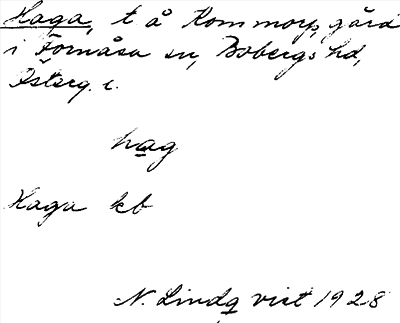 Haga, t å Kommorps gård
i Fornåsa sn, Bobergs hd,
Österg. l.
hag
Haga kb
N. Lindqvist 1928